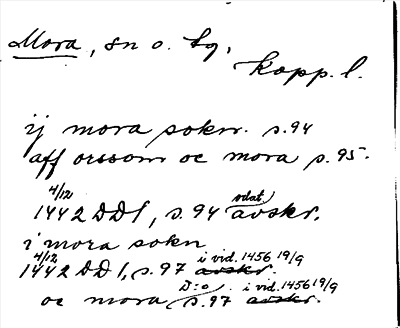 Mora, sn o. tg.
Kopp. l.
ij mora sokn. s. 94
aff orssom oc mora s. 95.
4/12 odat.
1442 DD1, s. 94 avskr.
i mora sokn
4/12 i vid. 1456 19/9
1442 DD1, s. 97 avskr.
D:o i vid. 1456 19/9
oc mora s. 97 avskr.